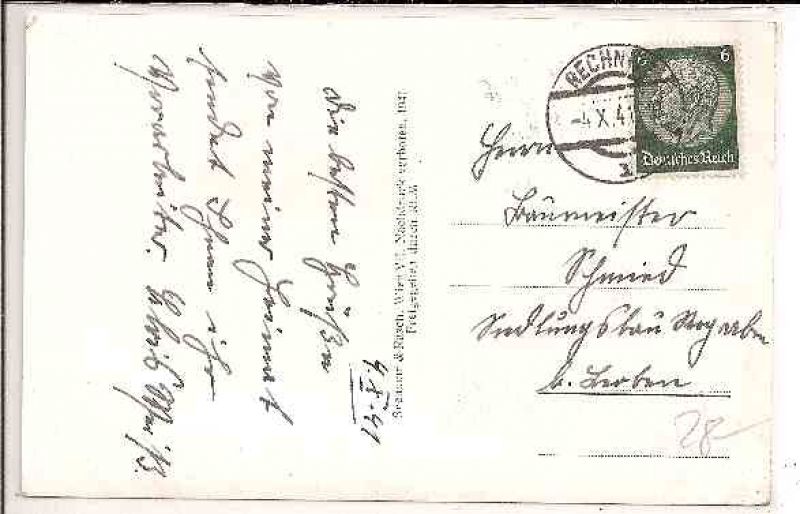 Die besten Grüße
von meiner Heimat
sendet Ihnen ihr
Vorarbeiter.
4.X.41
Brenner & Rasch, Wien VII. Nachdruck verboten. 1941
Freigegeben durch RLM
RECHN
-4.X.4
6
6
Deutsches Reich
Herrn
Baumeister
Schmied
Siedlungsbau
b. Leoben
28